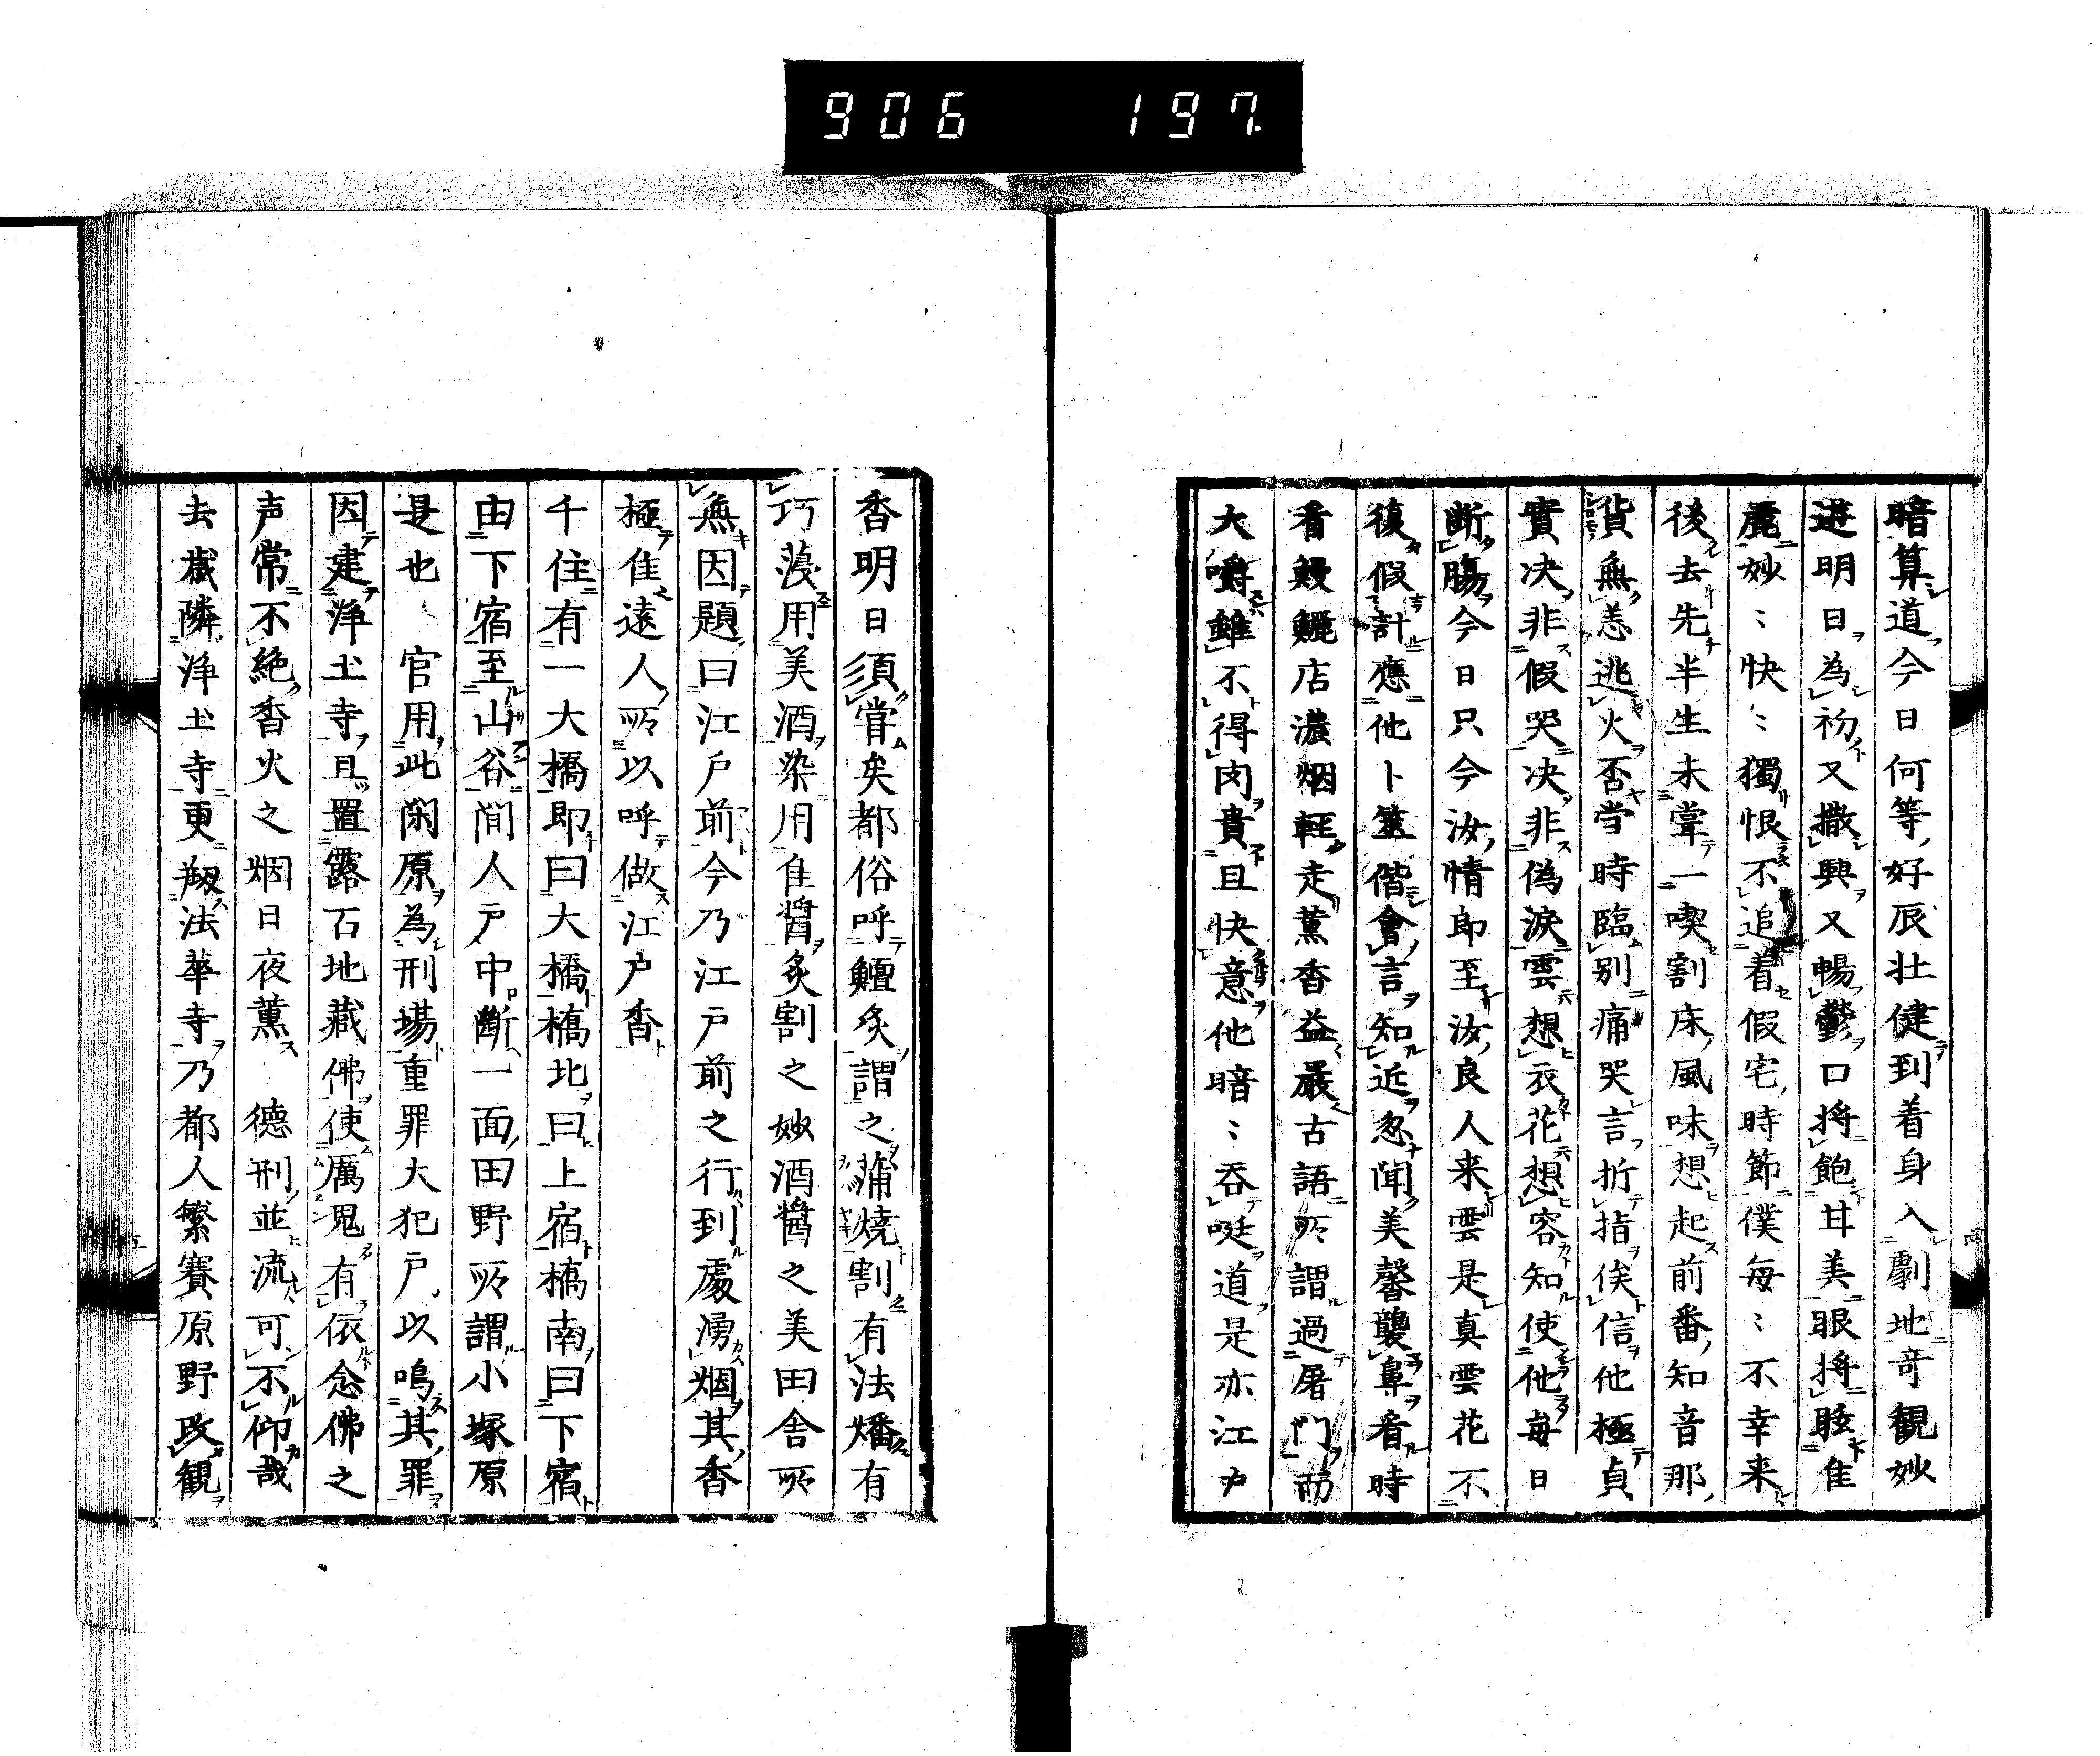 906 197
暗算道今日何等好辰壮健到着身入劇地奇観妙
遊明日為礽又撒興又暢鬱口将飽甘美眼将眩隹
麗妙〻快〻獨恨不追着假宅時節僕每〻不幸来
後去先半生未嘗一喫割床風味想起前番知音那
貨無恙逃火否当時臨別痛哭言折指俟信他極貞
實决非假哭决非偽淚雲想衣花想容知使他每日
断腸今日只今汝情郎至汝良人来雲是真雲花不
復假計應他卜筮偕會言知近忽聞美馨襲鼻看時
看鰻鱺店濃烟軽走薫香益嚴古語所謂過屠門而
大嚼雖不得肉貴且快意他暗〻吞唌道是亦江戸
香明日須嘗矣都俗呼鱣炙謂之蒲燒割有法燔有
巧蘯用美酒染用隹醤炙割之妙酒醤之美田舎所
無因題曰江戸前今乃江戸前之行到處湧烟其香
極隹遠人所以呼做江戸香
千住有一大橋即曰大橋橋北曰上宿橋南曰下宿
由下宿至山谷間人戸中斷一面田野所謂小塚原
是也 官用此閑原為刑場重罪大犯戸以鳴其罪
因建浄土寺且置露石地藏佛使厲鬼有依念佛之
声常不絶香火之烟日夜薫 德刑並流可不仰哉
去歳隣浄土寺更剏法華寺乃都人繁賽原野改観